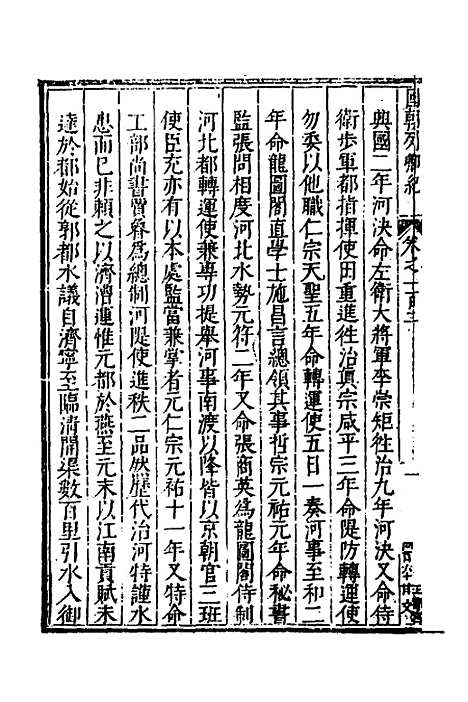 國朝列卿紀
卷之一百三
興國二年河決命左衛大將軍李崇矩往治九年河決又命侍
衛步軍都指揮使田重進往治真宗咸平三年命隄防轉運使
勿委以他職仁宗天聖五年命轉運使五日一奏河事至和二
年命龍圖閣直學士施昌言總領其事哲宗元祐元年命秘書
監張問相度河北水勢元符二年又命張商英爲龍圖閣待制
河北都轉運使兼専功提舉河事南渡以降皆以京朝官三班
使臣充亦有以本處監當兼掌者元仁宗元祐十一年又特命
工部尚書賈魯爲總制河隄使進秩二品然歷代治河特護水
患而已非頼之以濟漕運惟元都於燕至元末以江南貢賦未
達於都始從郭都水議自濟寧至臨清開渠數百里引水入御